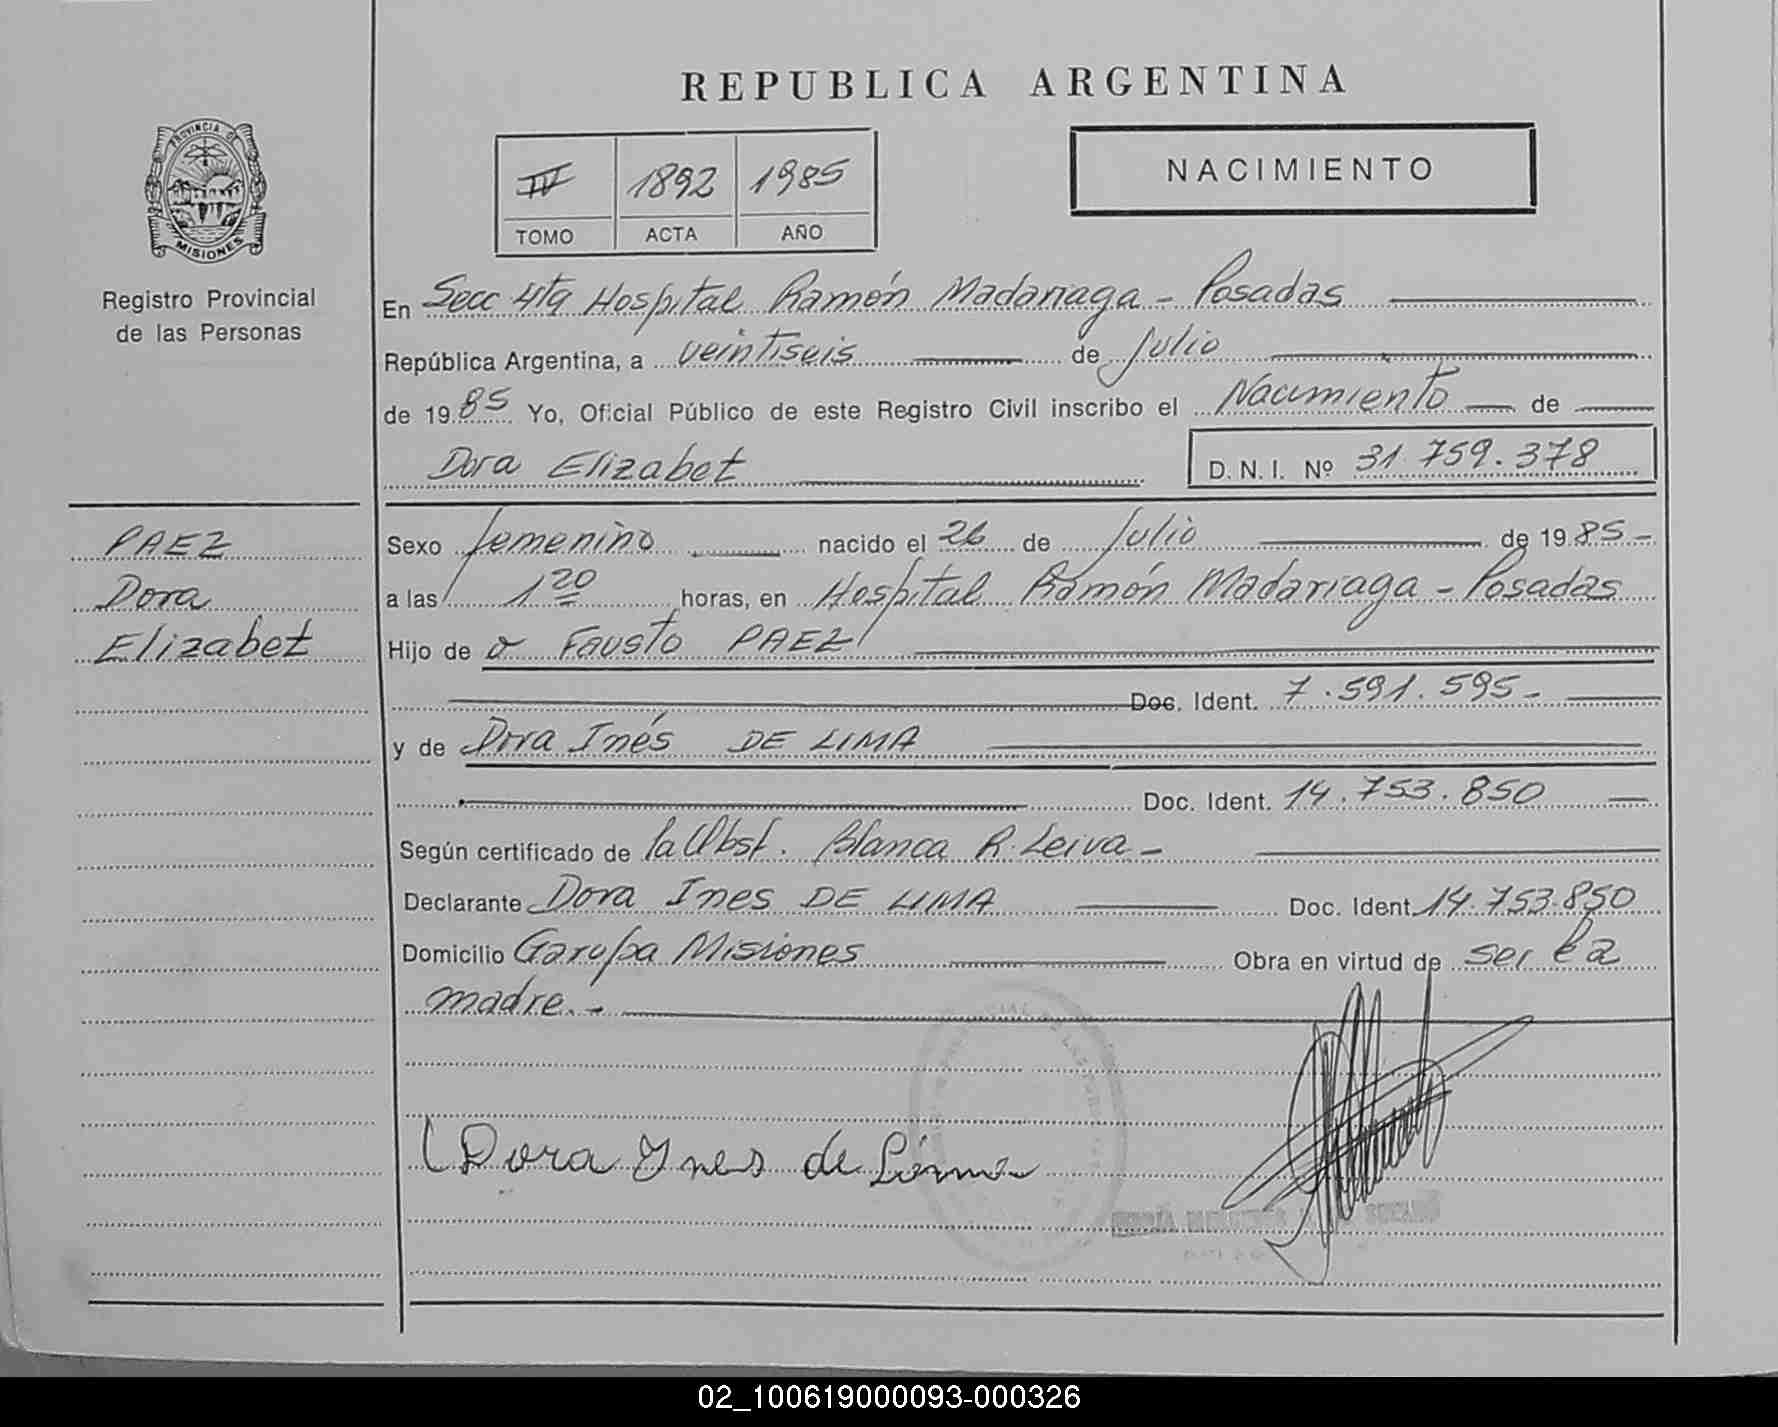 REPUBLICA ARGENTINA
PROVINCIA DE
MISIONES
Registro Provincial
de las Personas
IV 1892 1985
TOMO ACTA AÑO
NACIMIENTO
En Secc 4ta Hospital Ramón Madariaga - Posadas
República Argentina, a veintiseis de Julio
de 1985 Yo, Oficial Público de este Registro Civil inscribo el Nacimiento de
Dora Elizabet D.N.I. Nº 31.759.378
PAEZ
Dora
Elizabet
Sexo femenino nacido el 26 de Julio de 1985-
a las 1 20 horas, en Hospital Ramón Madariaga - Posadas
Hijo de Fausto PAEZ
Doc. Ident. 7.591.595-
y de Dora Inés DE LIMA
Doc. Ident. 14.753.850
Según certificado de la Obst. Blanca R. Leiva -
Declarante Dora Ines DE LIMA Doc. Ident. 14.753.850
Domicilio Garupa Misiones Obra en virtud de ser la
madre. -
Dora Ynes de Lima
02_100619000093-000326